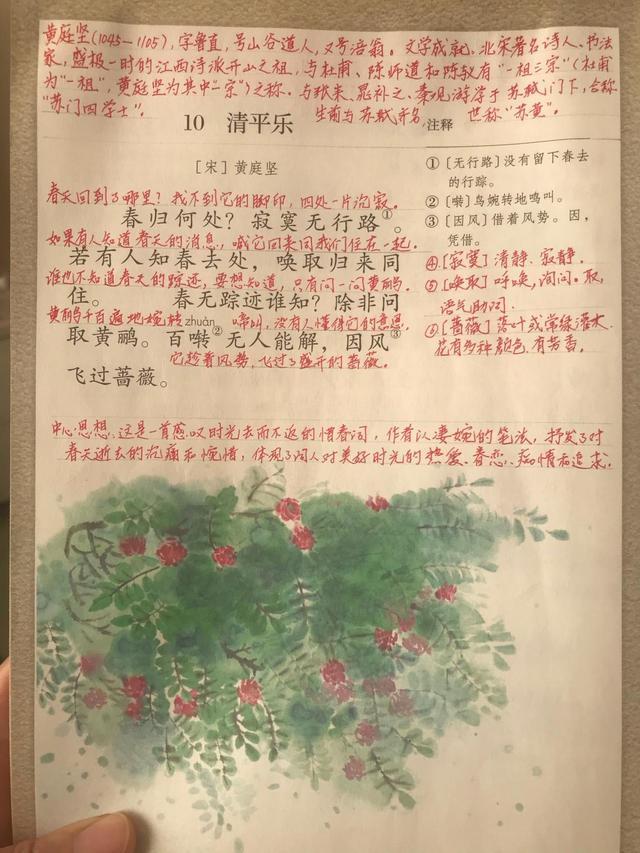 黄庭坚(1045—1105),字鲁直,号山谷道人,又号涪翁。文学成就、北宋著名诗人、书法
家,盛极一时的江西诗派开山之祖,与杜甫、陈师道和陈与义有"一祖三宗"(杜甫
为"一祖",黄庭坚为其中"一宗")之称。与张耒、晁补之、秦观游学于苏轼门下,合称
"苏门四学士"。
生前与苏轼齐名,世称"苏黄"。
10 清平乐
[宋]黄庭坚
春天回到了哪里?找不到它的脚印,四处一片沉寂。
春归何处?寂寞无行路①。
如果有人知道春天的消息,喊它回来同我们住在一起。
若有人知春去处,唤取归来同
谁也不知道春天的踪迹,要想知道,只有问一问黄鹂。
住。 春无踪迹谁知?除非问
黄鹂千百遍地婉转 zhuàn 啼叫,没有人懂得它的意思,
取黄鹂。百啭②无人能解,因风③
它趁着风势,飞过了盛开的蔷薇。
飞过蔷薇。
注释
①[无行路]没有留下春去
的行踪。
②[啭]鸟婉转地鸣叫。
③[因风]借着风势。因,
凭借。
④[寂寞]清静,寂静.
⑤[唤取]呼唤,询问。取,
语气助词.
⑥[蔷薇]落叶或常绿灌木.
花有多种颜色.有芳香。
中心思想:这是一首感叹时光去而不返的惜春词,作者以凄婉的笔法,抒发了对
春天逝去的沉痛和惋惜,体现了词人对美好时光的热爱、眷恋、痴情和追求。